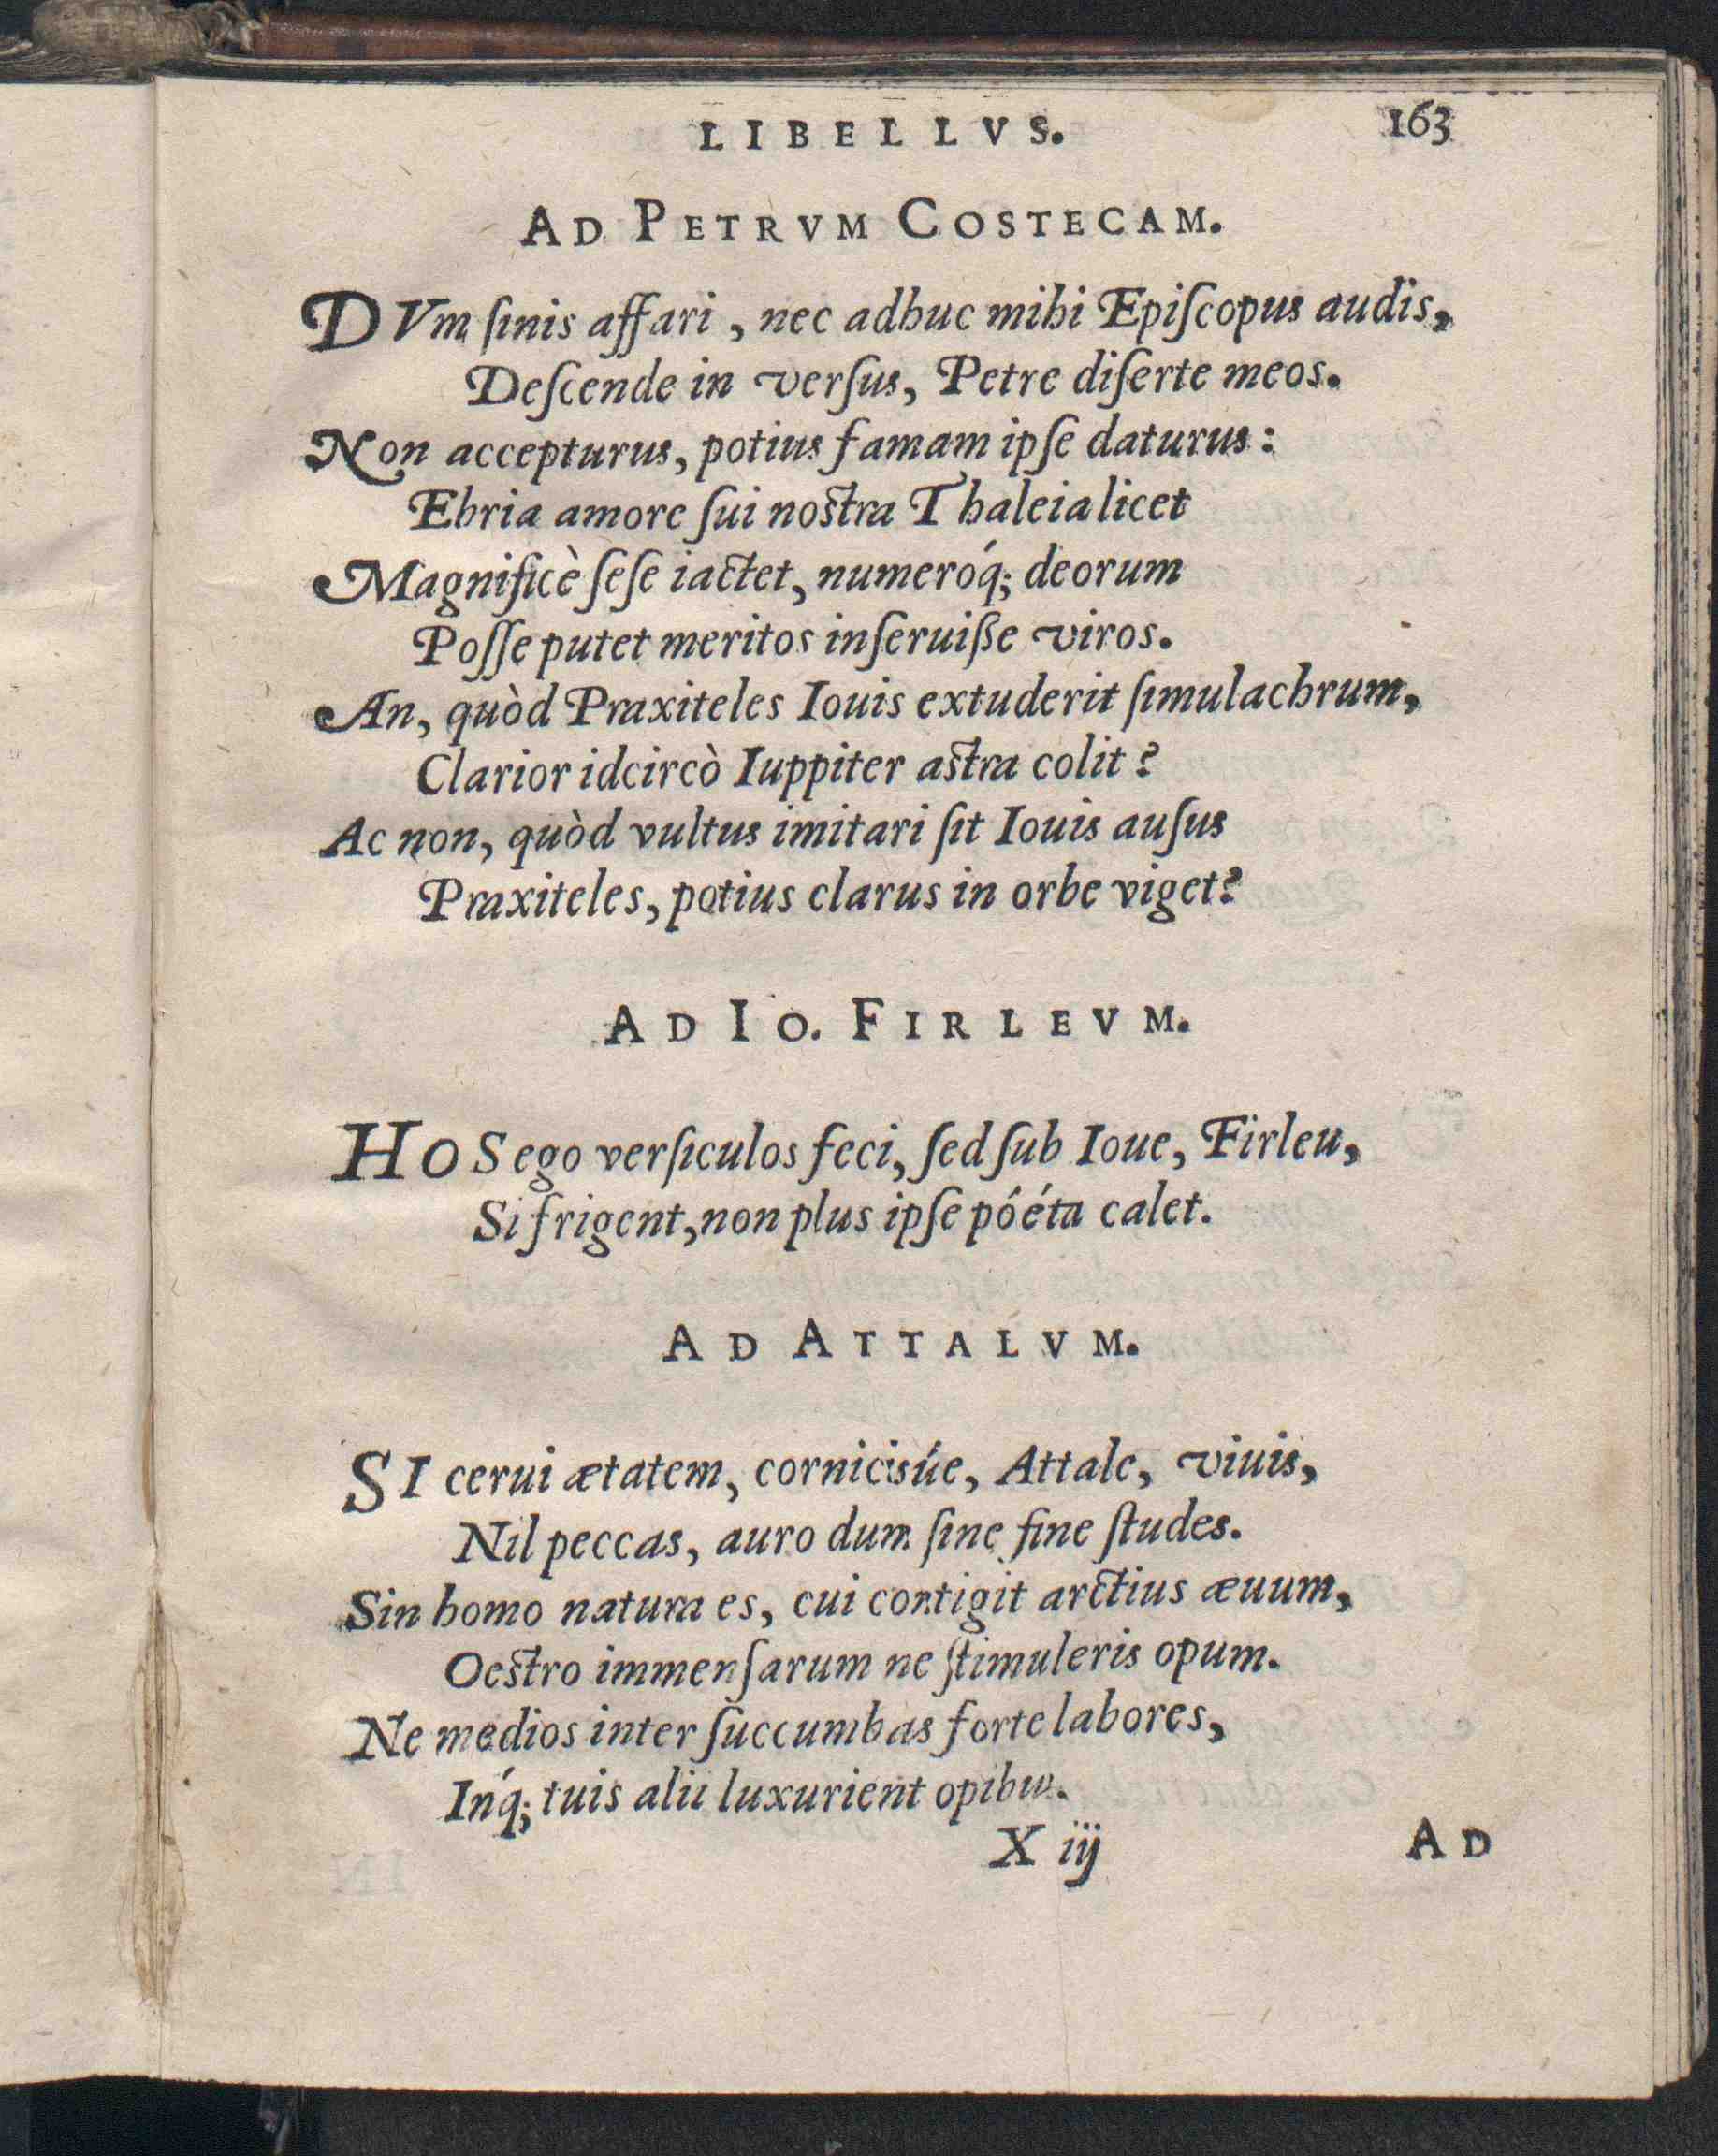 LIBELLVS. 163
AD PETRVM COSTECAM.
DVm ſinis affari, nec adhuc mihi Epiſcopus audis,
Deſcende in verſus, Petre diſerte meos.
Non accepturus, potius famam ipſe daturus:
Ebria amore ſui noſtra Thaleia licet
Magnificè ſeſe iactet, numeróq́; deorum
Poſſe putet meritos inſeruiße viros.
An, quòd Praxiteles Iouis extuderit ſimulachrum,
Clarior idcircò Iuppiter aſtra colit?
Ac non, quòd vultus imitari ſit Iouis auſus
Praxiteles, potius clarus in orbe viget?
AD IO. FIRLEVM.
HOS ego verſiculos feci, ſed ſub Ioue, Firleu,
Si frigent, non plus ipſe póéta calet.
AD ATTALVM.
SI cerui ætatem, cornicisúe, Attale, viuis,
Nil peccas, auro dum ſine fine ſtudes.
Sin homo natura es, cui contigit arctius æuum,
Oeſtro immenſarum ne ſtimuleris opum.
Ne medios inter ſuccumbas forte labores,
Inq́; tuis alii luxurient opibus.
X iij AD